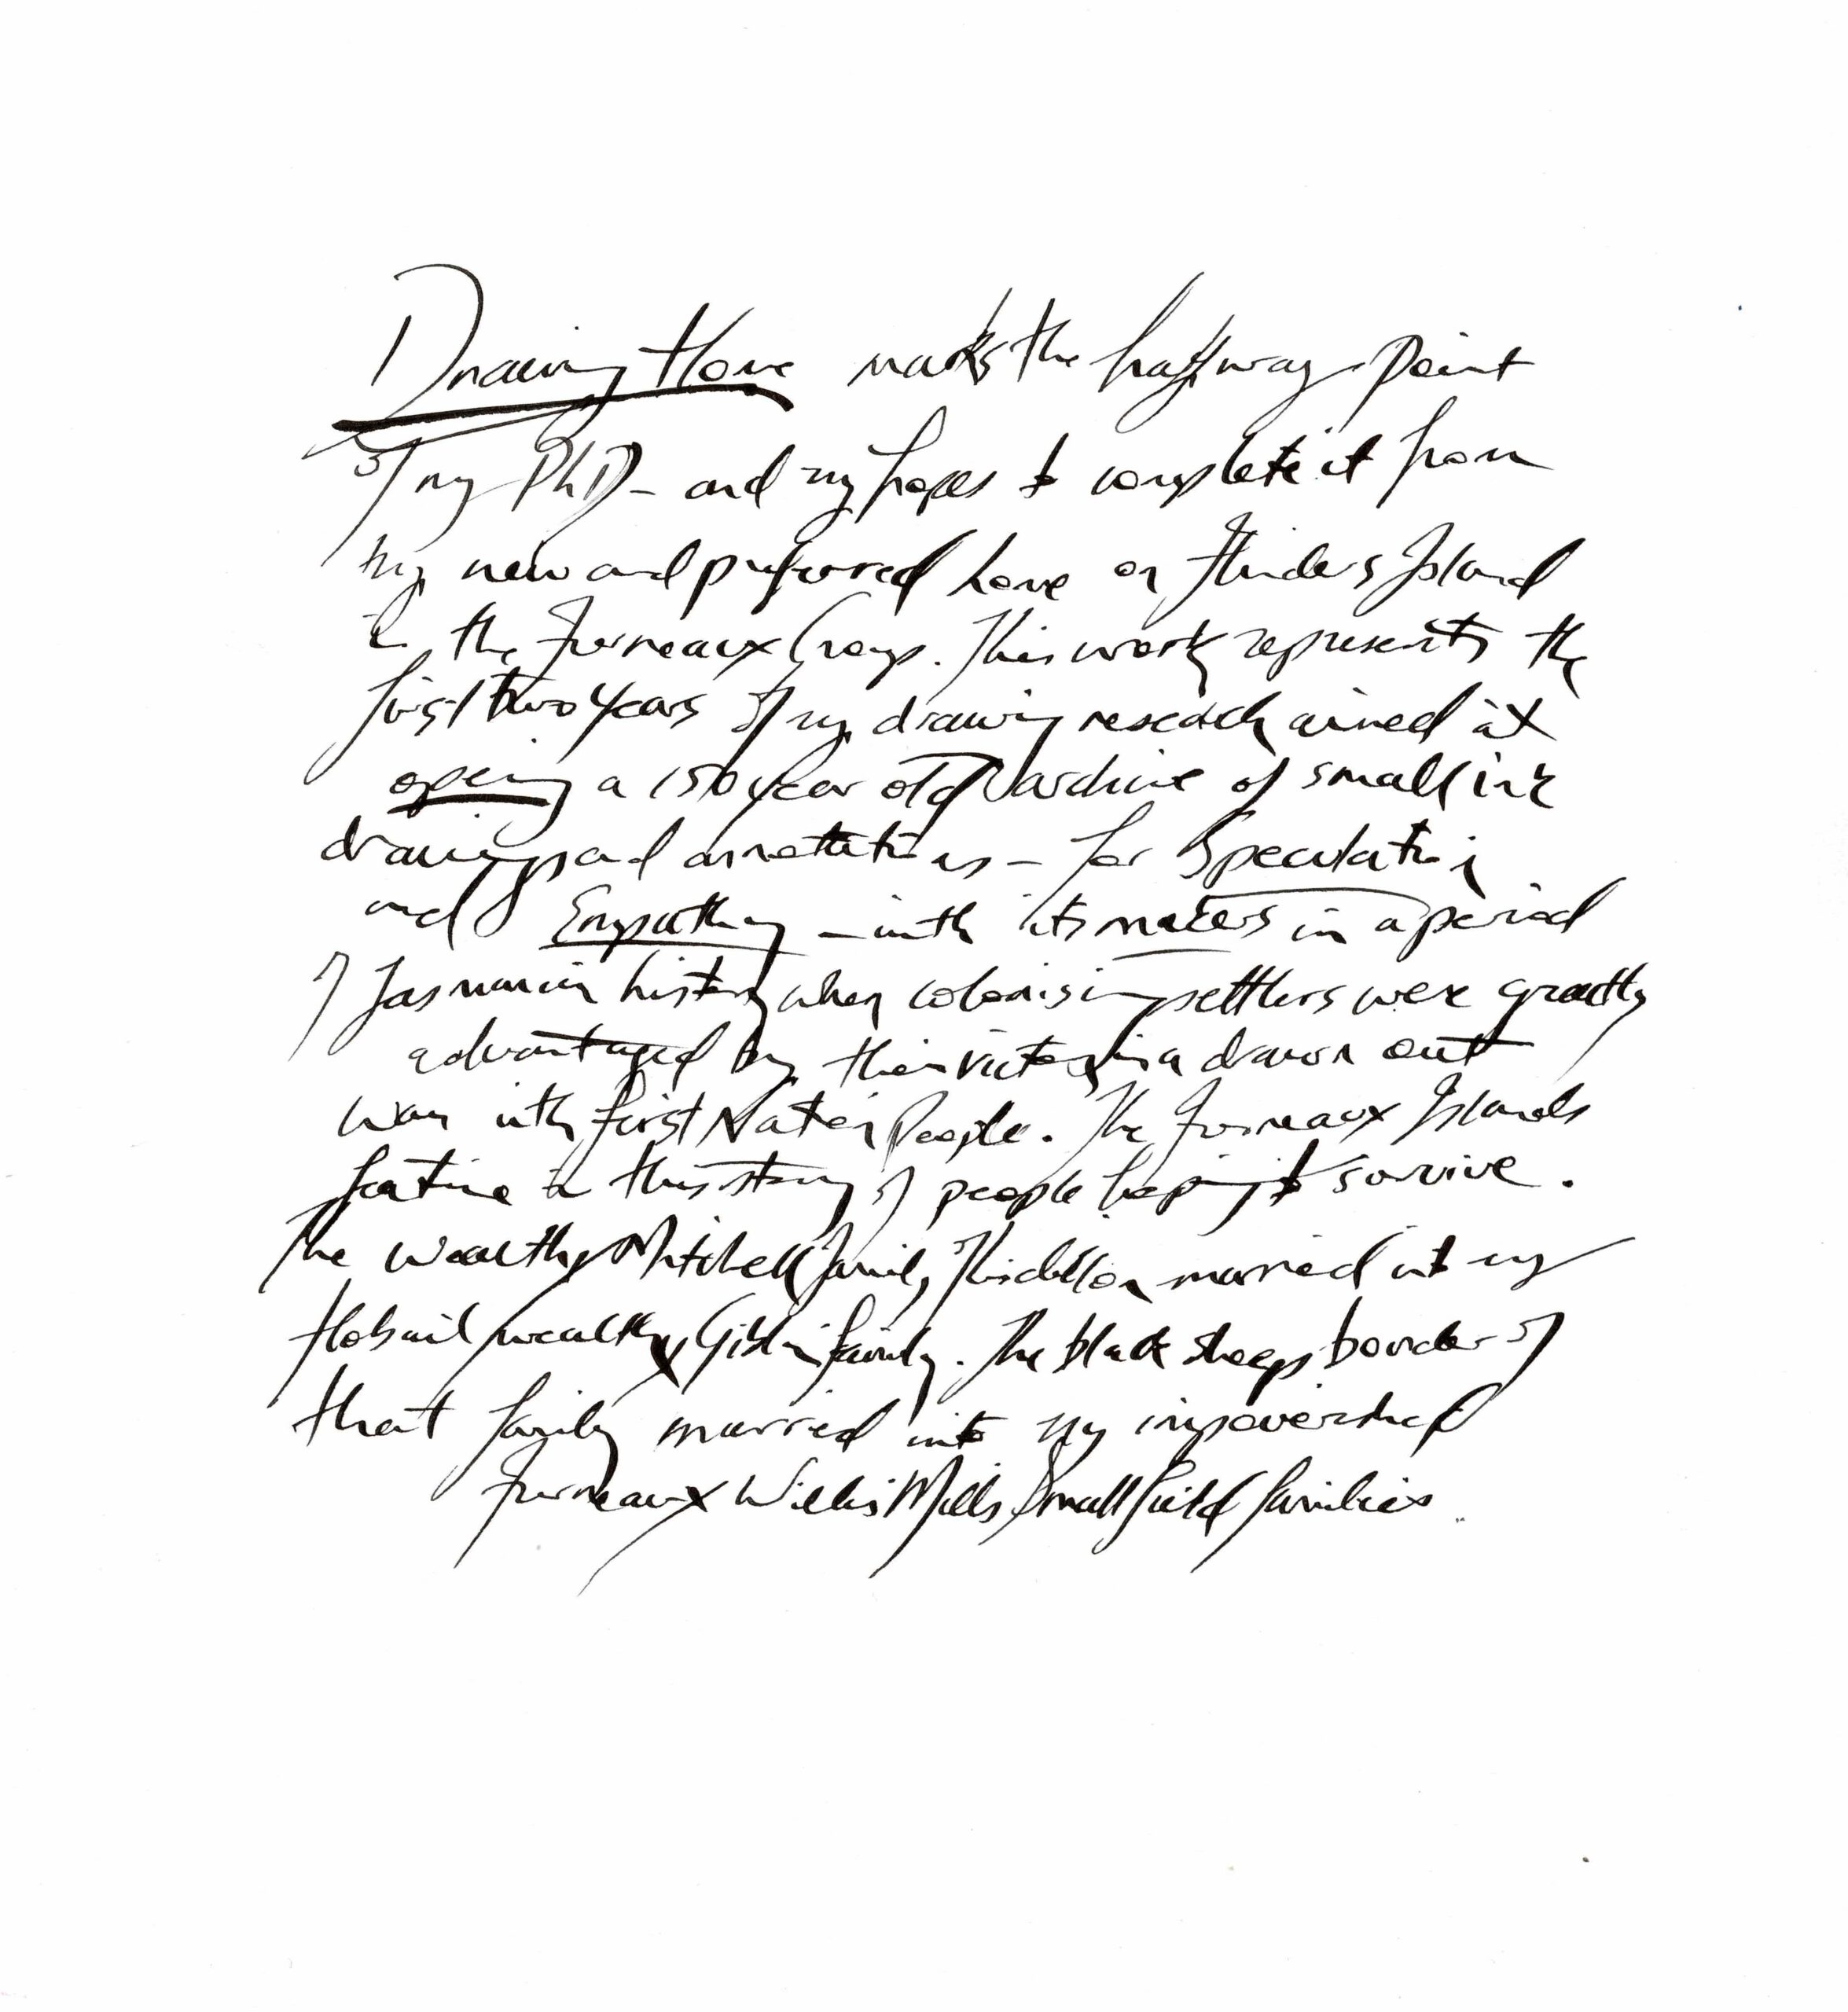 Drawing Home marks the halfway point
of my PhD – and my hopes to complete it from
my new and preferred home on Flinders Island
in the Furneaux Group. This work represents the
first two years of my drawing research aimed at
opening a 150 year old archive of small ink
drawings and annotations – for Speculation
and Empathy – with its makers in a period
of Tasmanian history when colonising settlers were greatly
advantaged by their victory in a drawn out
war with First Nation People. The Furneaux Islands
feature in this story of people hoping to survive.
The wealthy Mitchell family of married into my
Hobart wealthy Giblin family. The black sheep of
that family married into my impoverished
Furneaux Willis Mills Smallfield families